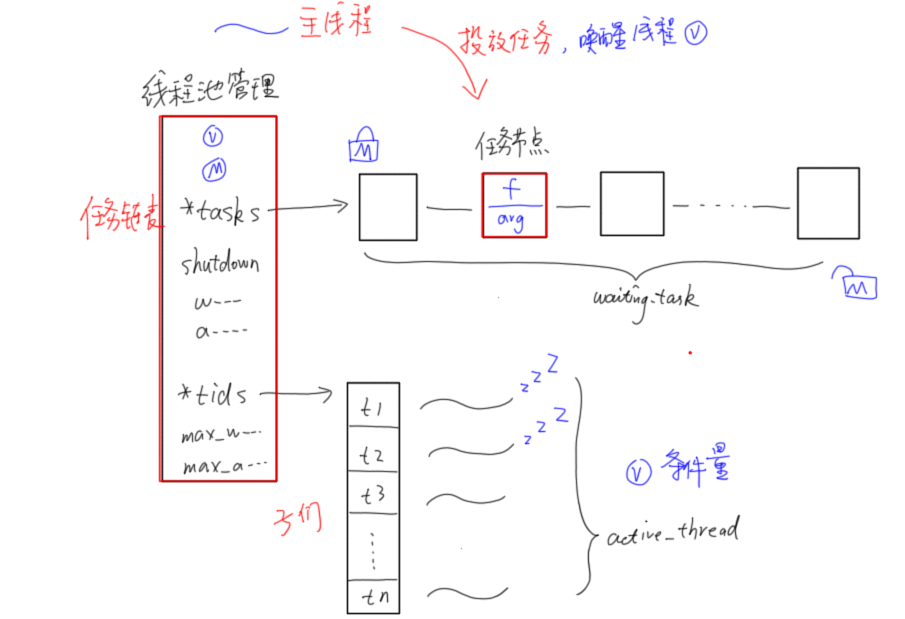 主线程
投放任务，唤醒线程 V
线程池管理
V
M
任务链表
*tasks
shutdown
w---
a----
*tids
max_w---
max_a---
M
任务节点
f
arg
waiting-task
M
t1
t2
t3
tn
子们
z z Z
z z Z
V 条件量
active_thread